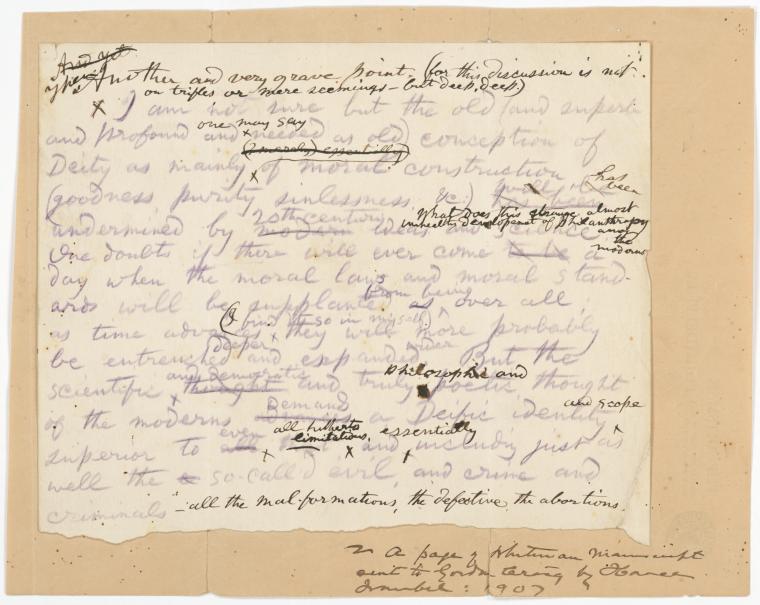 And yet
Another and very grave point. (for this discussion is not
on trifles or mere seemings — but deep, deep.)
I am not sure but the old (and superb
one may say
and profound and needed as old) conception of
essentially
Deity as mainly of moral construction
(goodness purity sinlessness, &c.) has been
has been
undermined by modern ideas and science.
20th century
What does this strange almost
unhealthy development of Philanthropy
among
the
moderns
One doubts if there will ever come to be a
day when the moral laws and moral stand-
ards will be supplanted as over all:
from being
(I find it so in myself)
as time advances they will more probably
deeper wider
be entrenched and expanded. But the
and Democratic
philosophic and
scientific thought and truly poetic thought
and scope
of the moderns Demand a Deific identity
even all hitherto
limitations, essentially
superior to all that and including just as
well the so-call'd evil, and crime and
criminals — all the mal-formations, the defective, the abortions.
A page of Whitman manuscript
sent to by Horace
Traubel: 1907